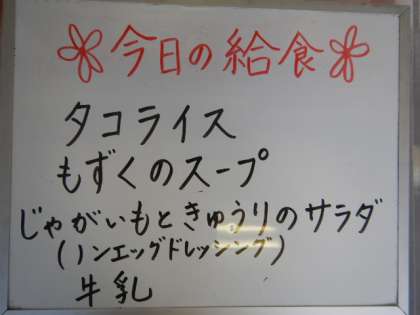 今日の給食
タコライス
もずくのスープ
じゃがいもときゅうりのサラダ
(ノンエッグドレッシング)
牛乳